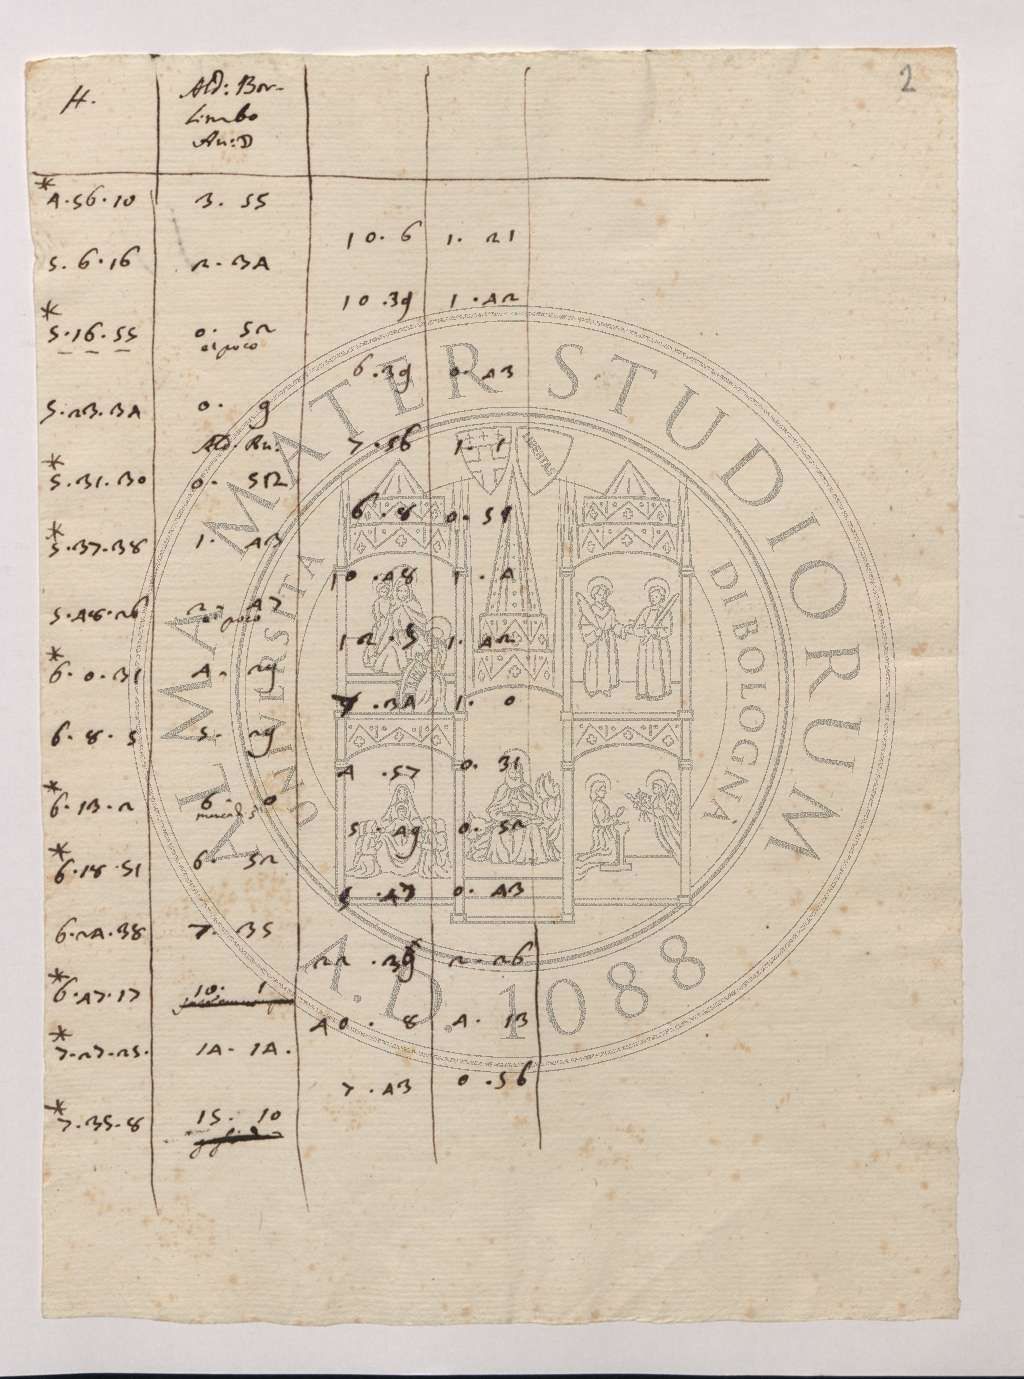 2
H.
Ald: Bor-
Limbo
Au: D
* 4.56.10 3. 55
10. 6 1. 21
5. 6. 16 2. 34
10 .39 1 .42
* 5.16.55 0. 52
al poco
6 .39 0. 43
5.23.34 0. 9
Ald. Au:
7 .56 1. 1
* 5.31.30 0. 52
6 .8 0. 51
* 5.37.38 1. 43
10 .48 1 .4
5.48.26 2. 47
al poco
12 .5 1. 42
* 6. 0. 31 4. 29
7 .34 1. 0
6. 8. 5 5. 29
4 .57 0. 31
* 6. 13. 2 6. 0
5. 49 0. 52
* 6.18.51 6. 52
5 .47 0. 43
6.24.38 7. 35
22 .39 2. 26
* 6.47.17 10. 1
40. 8 4. 13
* 7.27.25. 14. 14.
7 .43 0 .56
* 7.35.8 15. 10
ALMA MATER STUDIORUM
UNIVERSITA DI BOLOGNA
A.D. 1088